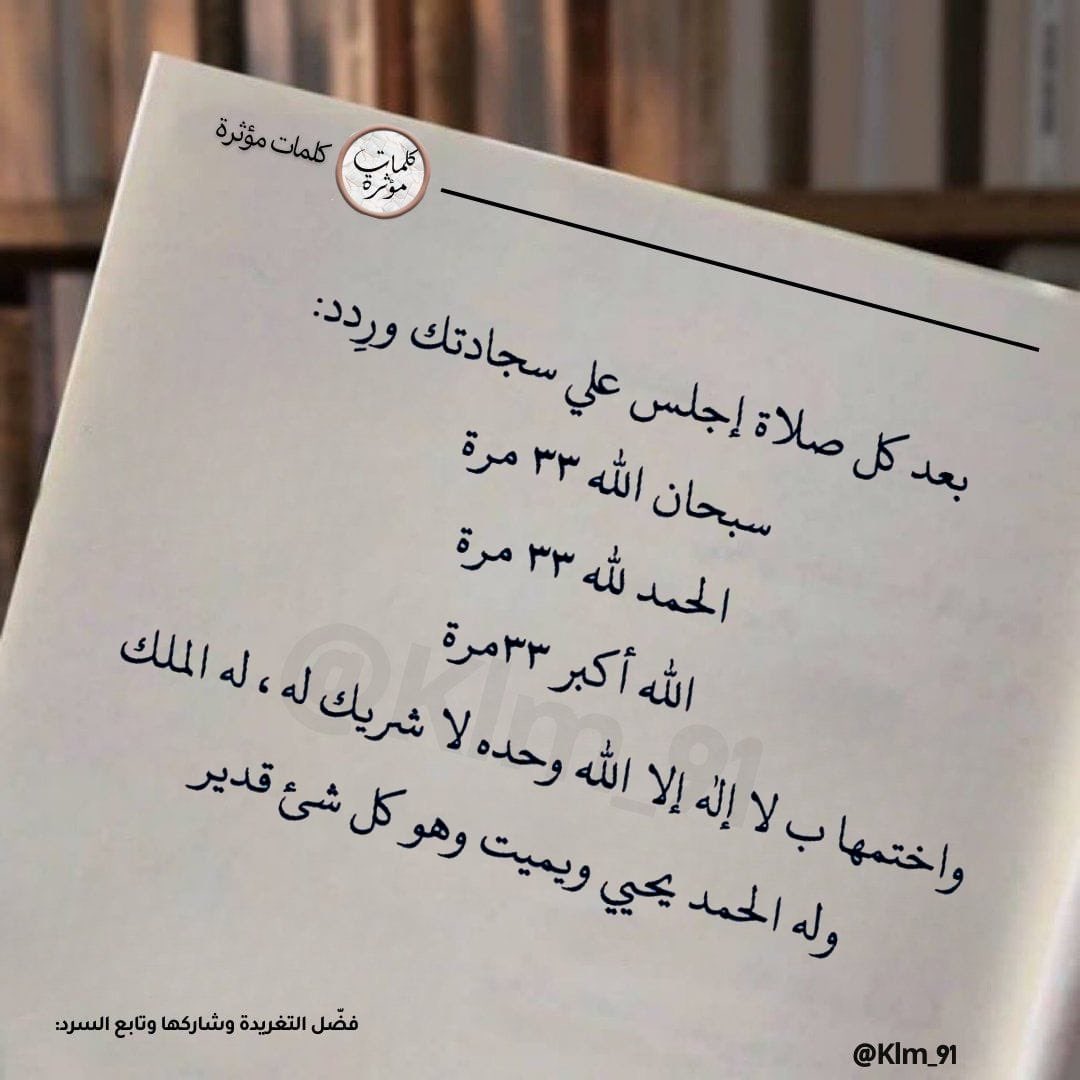 كلمات مؤثرة
كلمات
مؤثرة
بعد كل صلاة إجلس علي سجادتك ورِدد:
سبحان الله ٣٣ مرة
الحمد لله ٣٣ مرة
الله أكبر ٣٣مرة
واختمها ب لا إله إلا الله وحده لا شريك له ، له الملك
وله الحمد يحيي ويميت وهو كل شئ قدير
@Klm_91
فضّل التغريدة وشاركها وتابع السرد:
@Klm_91